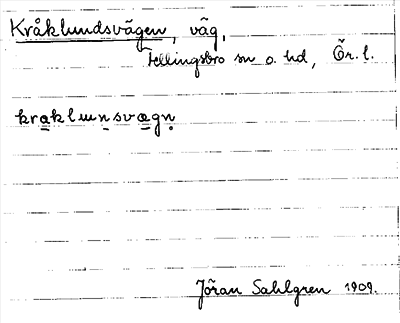 Kråklundsvägen, väg,
Fellingsbro sn o. hd, Ör. l.
krakluunsvægn
Jöran Sahlgren 1909.